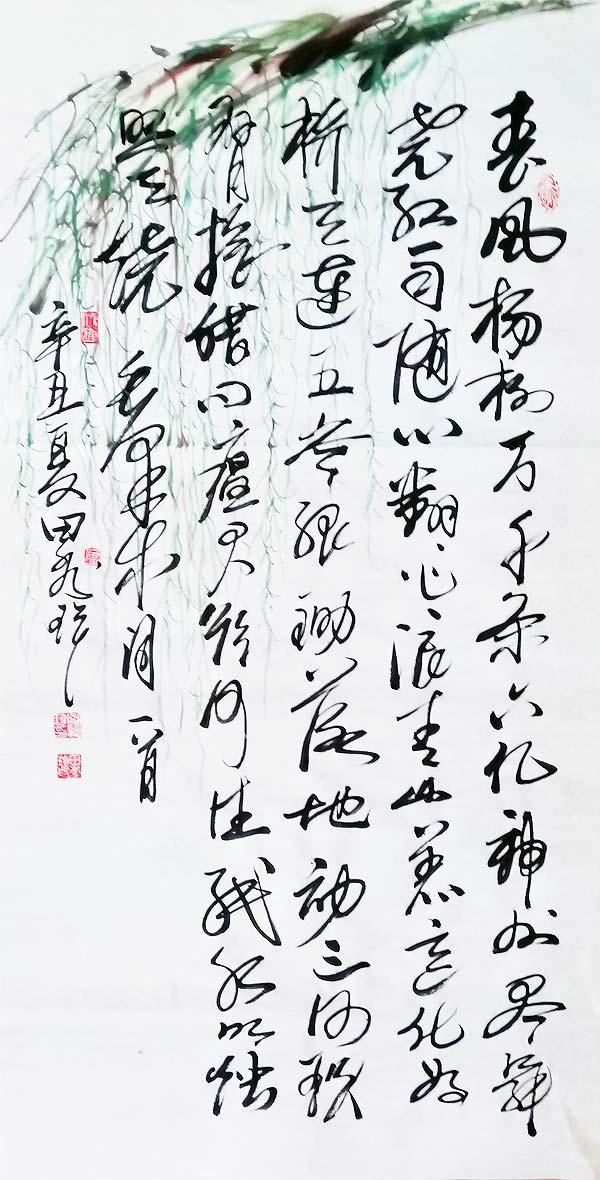 春风杨柳万千条六亿神州尽舜
尧红雨随心翻作浪青山着意化为
桥天连五岭银锄落地动三河铁
臂摇借问瘟君欲何往纸船明烛
照天烧 毛泽东词一首
辛丑夏田秀